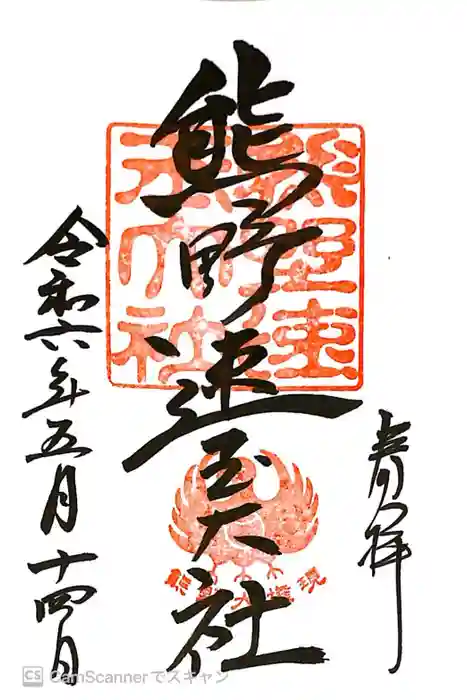 奉拝
熊野速玉大社
熊野速
玉大社
令和六年五月十四日
CS CamScannerでスキャン